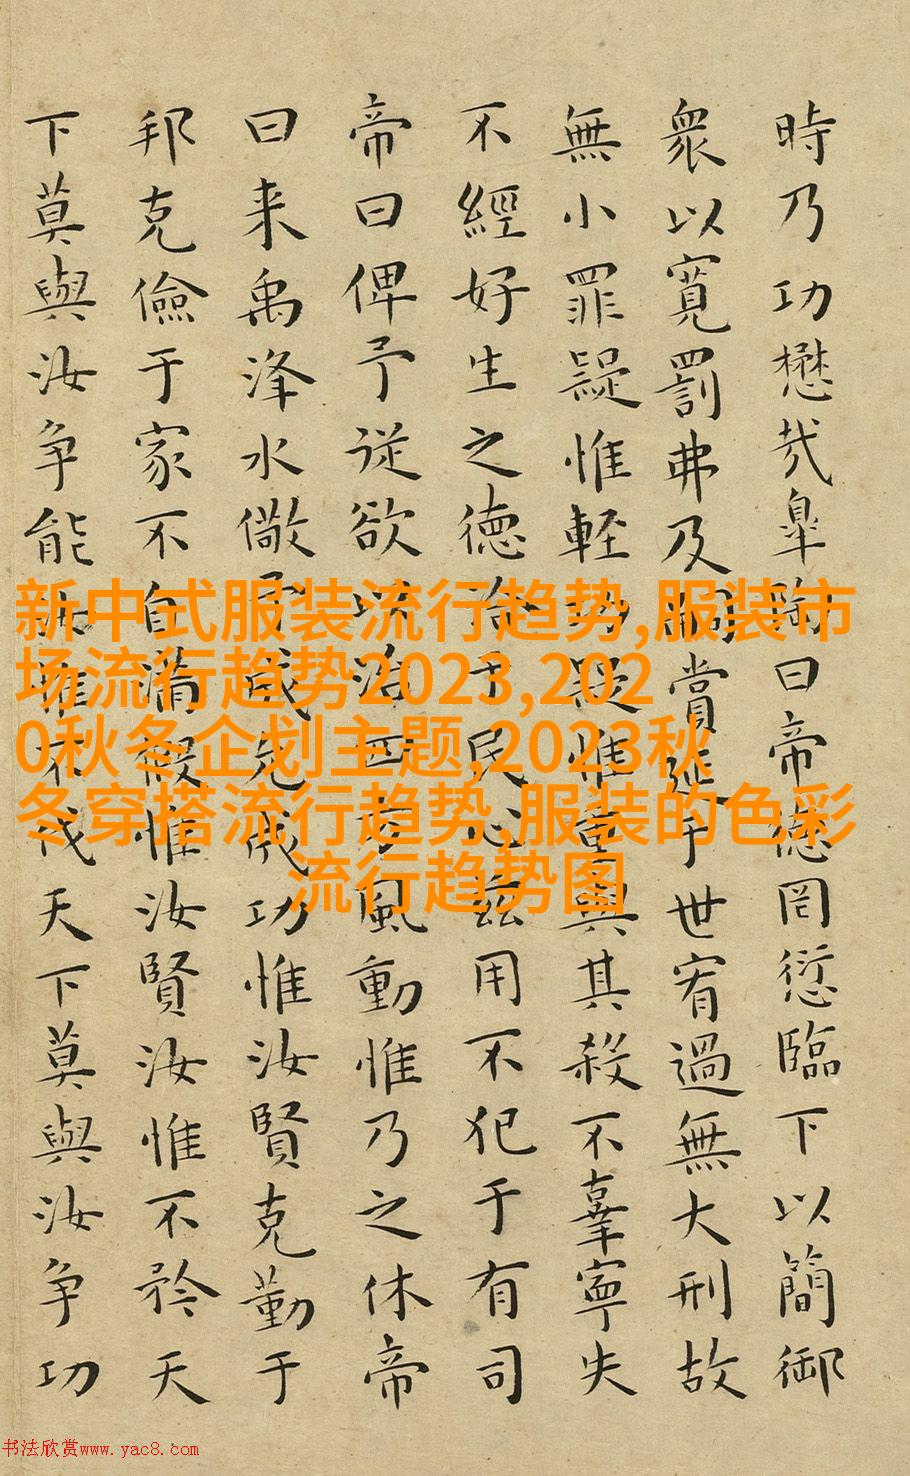 時乃功懋哉臯陶曰帝德罔愆臨下以簡御
衆以寬罰弗及嗣賞延于世宥過無大刑故
無小罪疑惟輕功疑惟重與其殺不辜寧失
不經好生之德洽于民心兹用不犯于有司
帝曰俾予從欲以治四方風動惟乃之休帝
曰来禹洚水儆予成允成功惟汝賢克勤于
邦克儉于家不自滿假惟汝賢汝惟不矜天
下莫與汝争能汝惟不伐天下莫與汝争功
新中式服装流行趋势,服装市
场流行趋势2023,202
0秋冬企划主题,2023秋
冬穿搭流行趋势,服装的色彩
流行趋势图
书法欣赏www.yac8.com